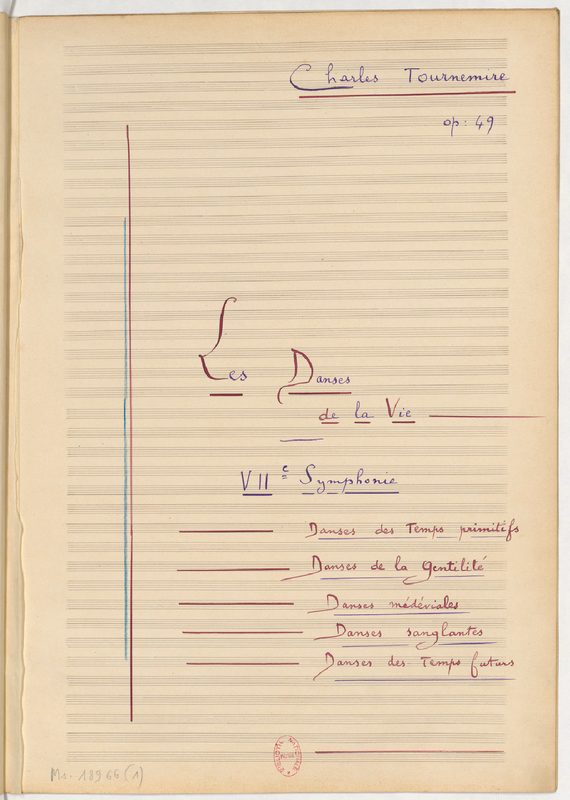 Charles Tournemire
op: 49
Les Danses
de la Vie
VII e Symphonie
Danses des Temps primitifs
Danses de la Gentilité
Danses médéviales
Danses sanglantes
Danses des Temps futurs
Ms. 18966 (1)